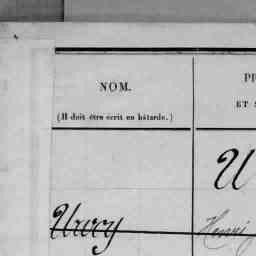 NOM.
(Il doit être écrit en bâtarde.)
PR
ET S
U
Urvoy
Henri